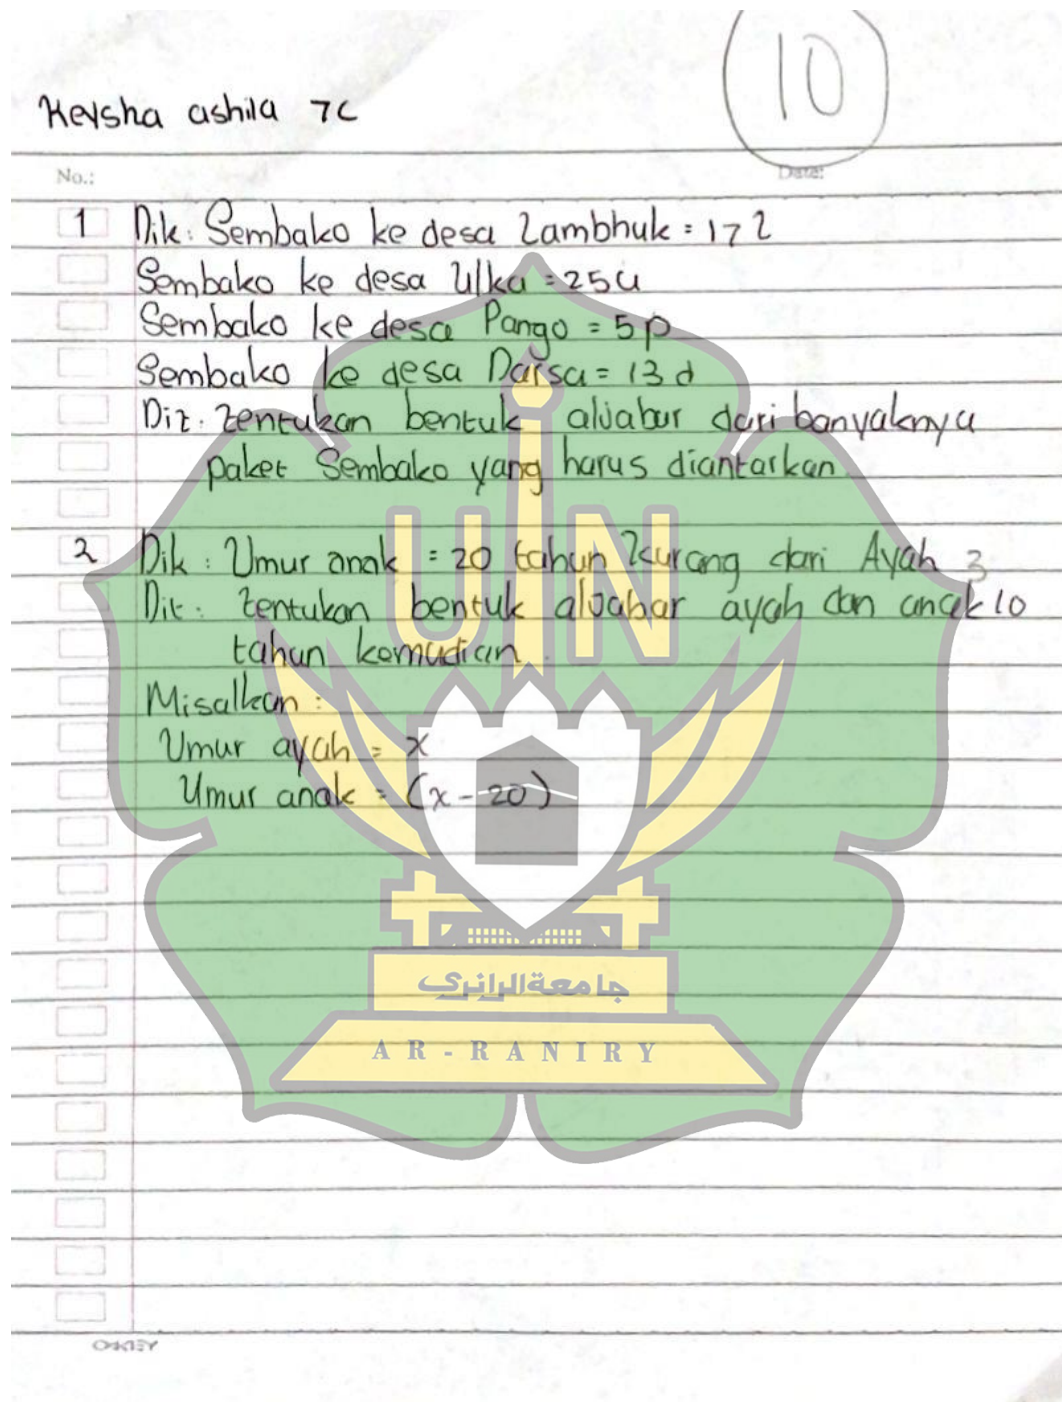 10
Keysha ashila 7C
No.:
Date:
1 Dik: Sembako ke desa Lambhuk = 17 l
Sembako ke desa Ulka = 25u
Sembako ke desa Pango = 5p
Sembako ke desa Darsa = 13 d
Dit: tentukan bentuk aljabar dari banyaknya
paket Sembako yang harus diantarkan
2 Dik: Umur anak = 20 tahun kurang dari Ayah 3
Dit: tentukan bentuk aljabar ayah dan anak 10
tahun kemudian.
Misalkan:
Umur ayah = x
Umur anak = (x - 20)
UIN
جامعة الرانري
AR-RANIRY
OAKLEY